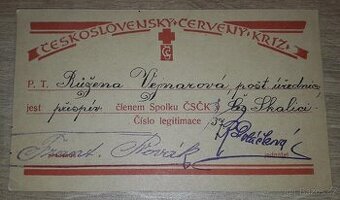 ČESKOSLOVENSKÝ ČERVENÝ KŘÍŽ.
P. T. Růžena Vejnarová, pošt. úřednice
jest přispív. členem Spolku ČSČK Skalici
Číslo legitimace
Frant. Novák